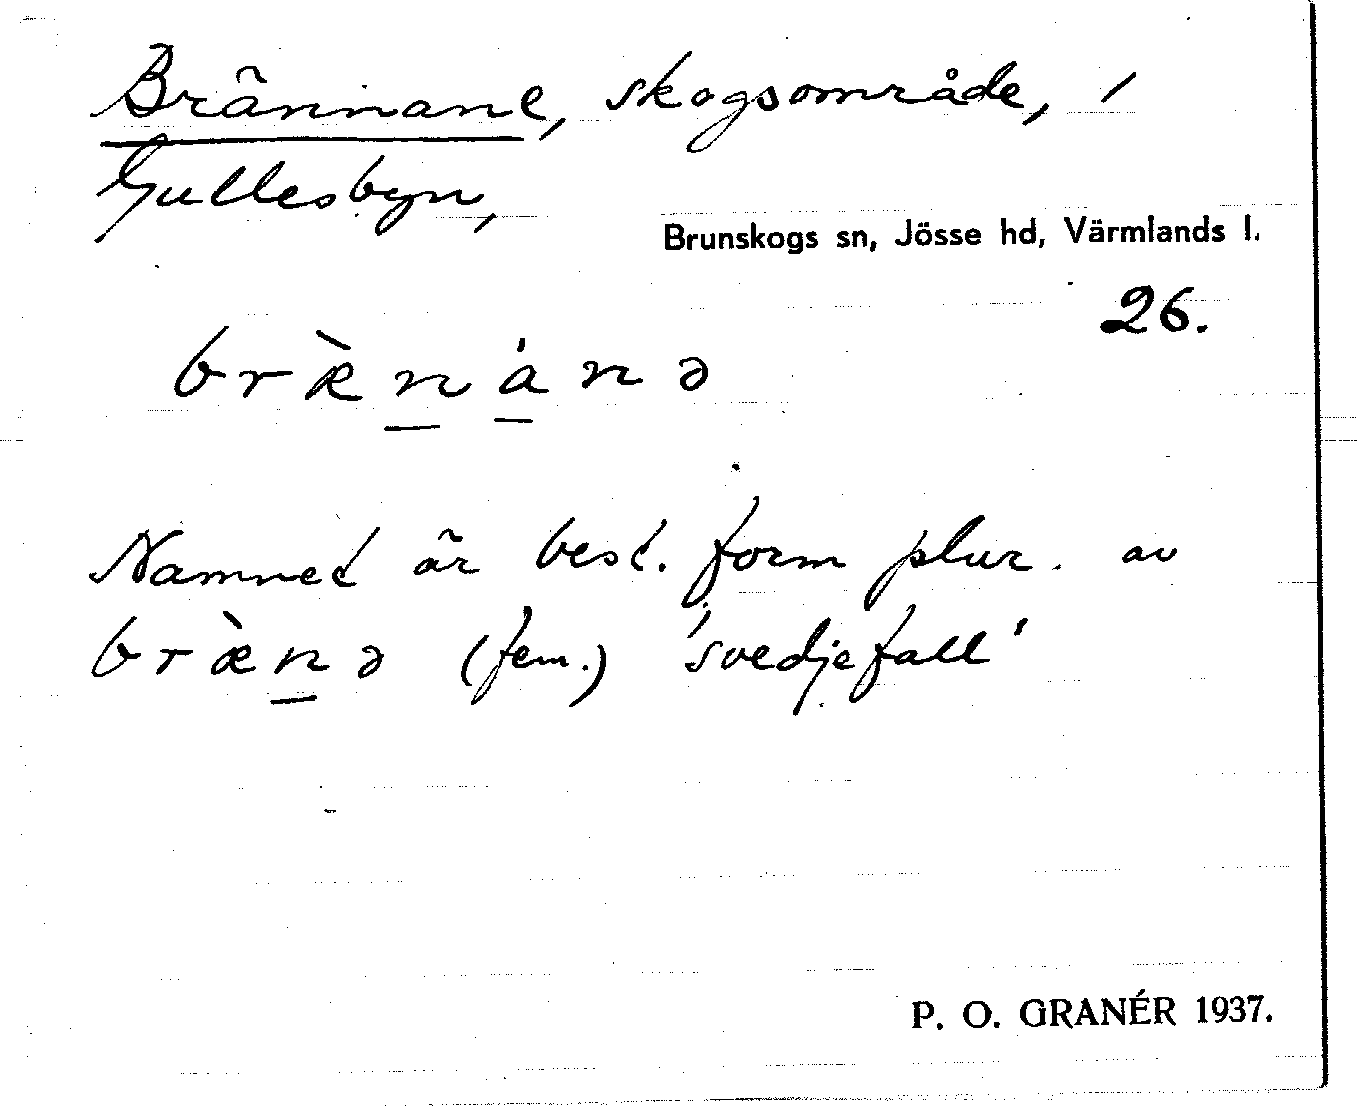 Brännane, skogsområde, i
Gullesbyn,
Brunskogs sn, Jösse hd, Värmlands l.
26.
bræ̀n̲á̲nə
Namnet är best. form plur. av
bræ̀n̲ə (fem.) 'svedjefall'
P. O. GRANÉR 1937.